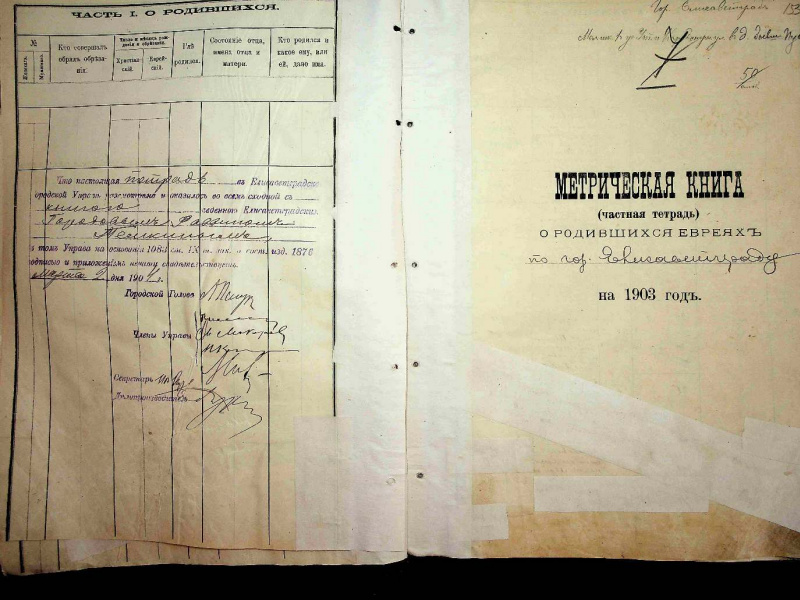 ЧАСТЬ I. О РОДИВШИХСЯ.
№
Женскій.
Мужескій.
Кто совершалъ обрядъ обрѣзанія.
Число и мѣсяцъ рожденія и обрѣзанія.
Христіанскій.
Еврейскій.
Гдѣ родился.
Состояніе отца, имена отца и матери.
Кто родился и какое ему, или ей, дано имя.
Что настоящая тетрадь въ Елисаветградской
Городской Управѣ разсмотрѣна и оказалось во всемъ сходной съ
книгою веденною Елисаветградскимъ
Городовымъ Раввиномъ
въ томъ Управа на основаніи 1083 ст. IX т. зак. о сост. изд. 1876
подписью и приложеніемъ печати свидѣтельствуетъ.
Марта 2 дня 1904 г.
Городской Голова
Члены Управы
Секретарь
Дѣлопроизводитель
Гор. Елисаветградъ
50
МЕТРИЧЕСКАЯ КНИГА
(частная тетрадь)
О РОДИВШИХСЯ ЕВРЕЯХЪ
по гор. Елисаветграду
на 1903 годъ.